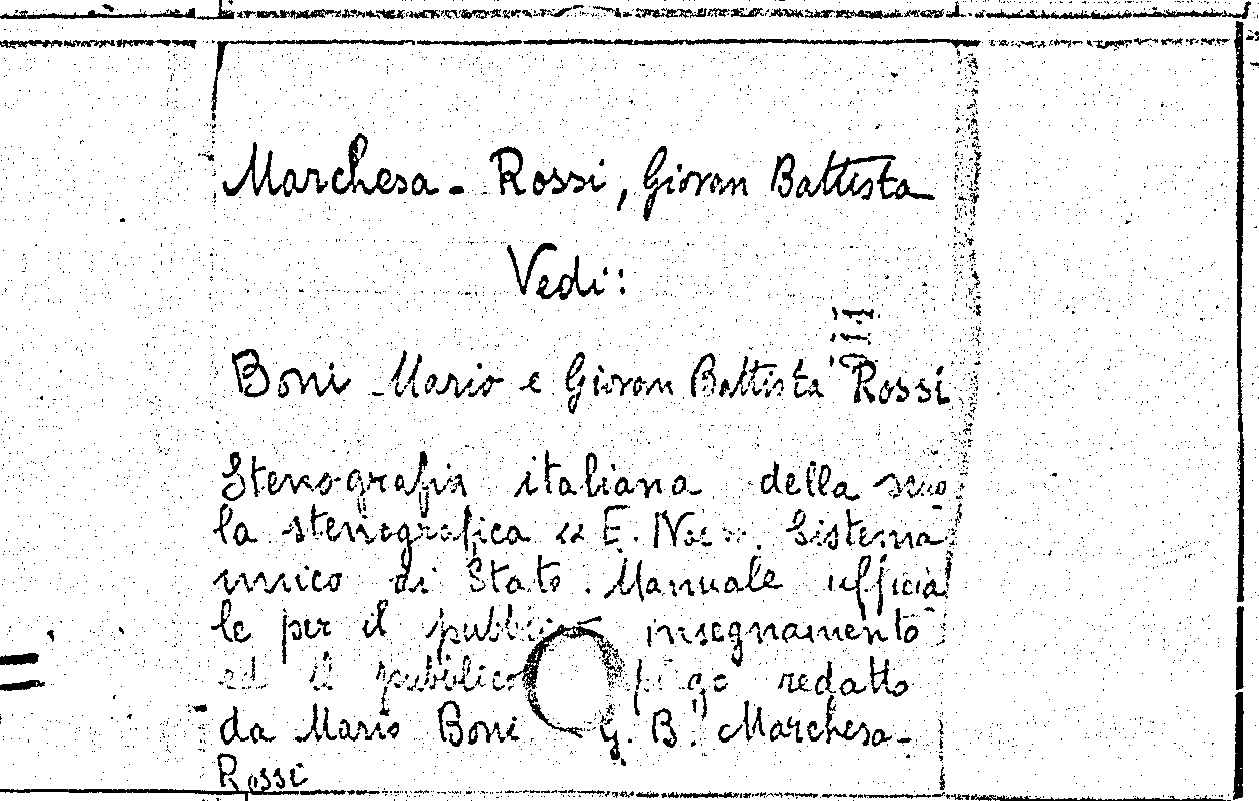 Marchesa - Rossi, Giovan Battista
Vedi:
Boni Mario e Giovan Battista Rossi
Stenografia italiana della scuo
la stenografica « E. Noe ». Sistema
unico di Stato. Manuale ufficia
le per il pubblico insegnamento
ed il pubblico redatto
da Mario Boni G. B. Marchesa-
Rossi